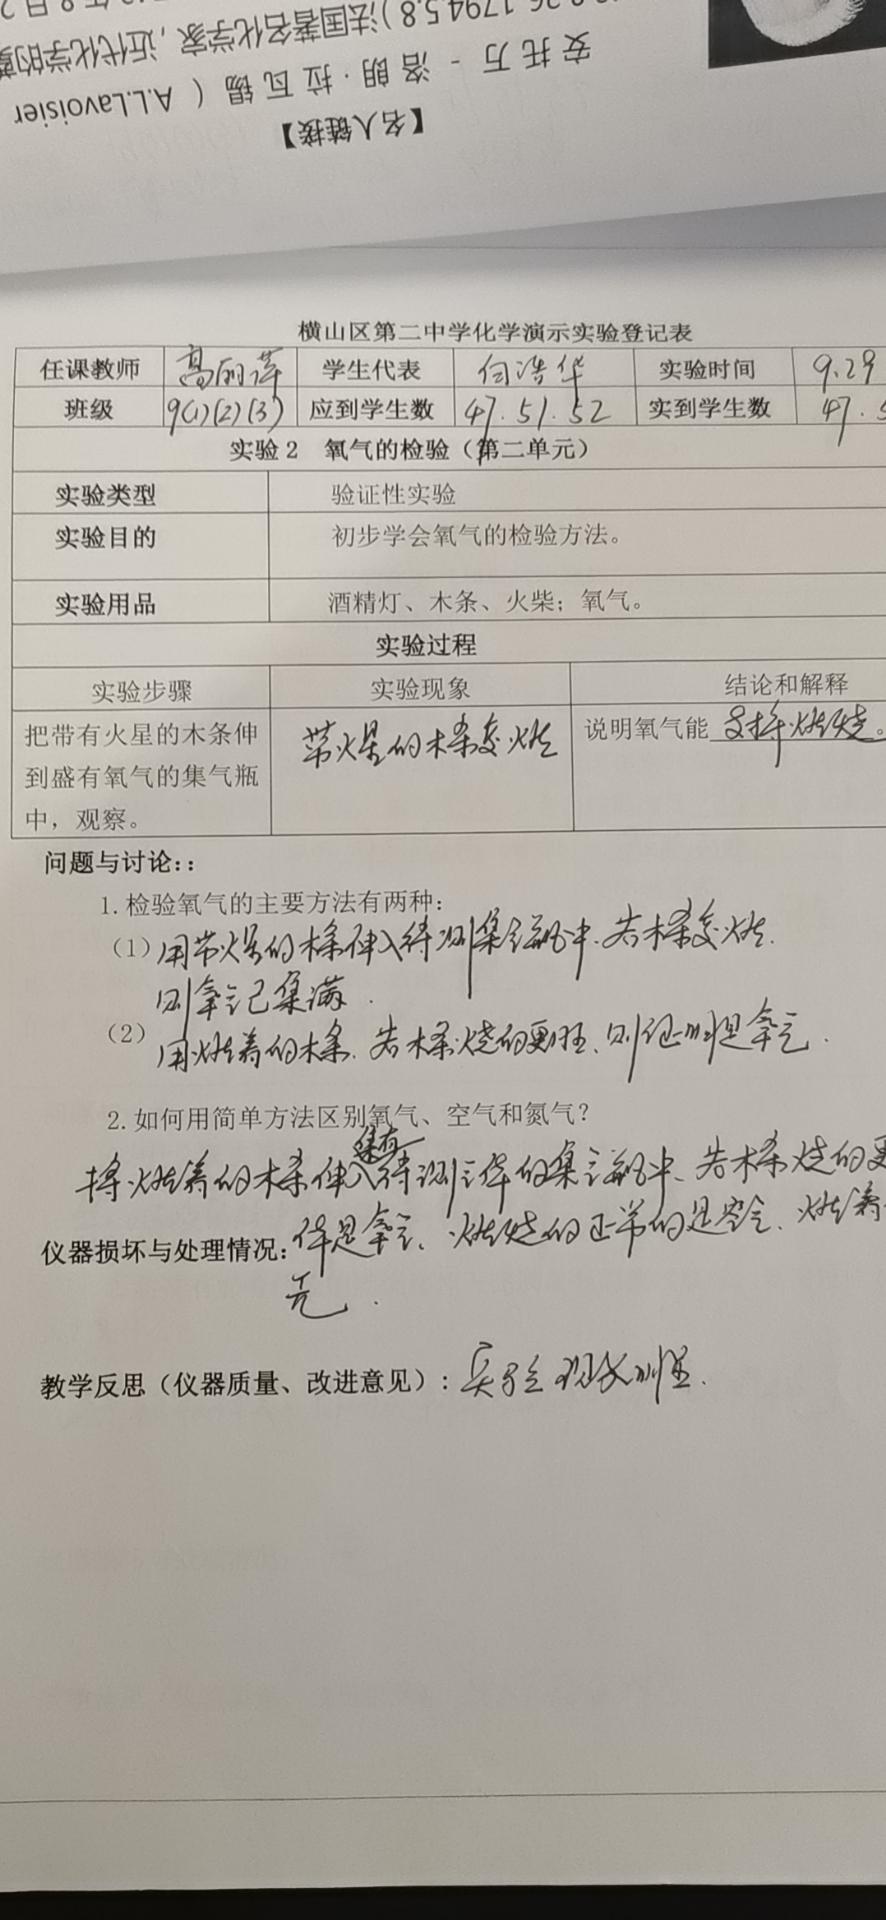 【名人链接】
安托万-洛朗·拉瓦锡（A.L.Lavoisier
1794.5.8）法国著名化学家，近代化学的
横山区第二中学化学演示实验登记表
任课教师 高丽萍 学生代表 白浩华 实验时间 9.29
班级 9(1)(2)(3) 应到学生数 47.51.52 实到学生数 47.5
实验2 氧气的检验（第二单元）
实验类型 验证性实验
实验目的 初步学会氧气的检验方法。
实验用品 酒精灯、木条、火柴；氧气。
实验过程
实验步骤 实验现象 结论和解释
把带有火星的木条伸 带火星的木条复燃 说明氧气能支持燃烧。
到盛有氧气的集气瓶
中，观察。
问题与讨论：:
1.检验氧气的主要方法有两种：
（1）用带火星的木条伸入待测集气瓶中、若木条复燃.
则氧气已集满.
（2）用燃着的木条.若木条烧的更旺、则证明是氧气.
2.如何用简单方法区别氧气、空气和氮气？
集有
将燃着的木条伸入待测气体的集气瓶中、若木条烧的更
仪器损坏与处理情况：体是氧气、燃烧的正常的是空气、燃着
教学反思（仪器质量、改进意见）：实验现象明显.